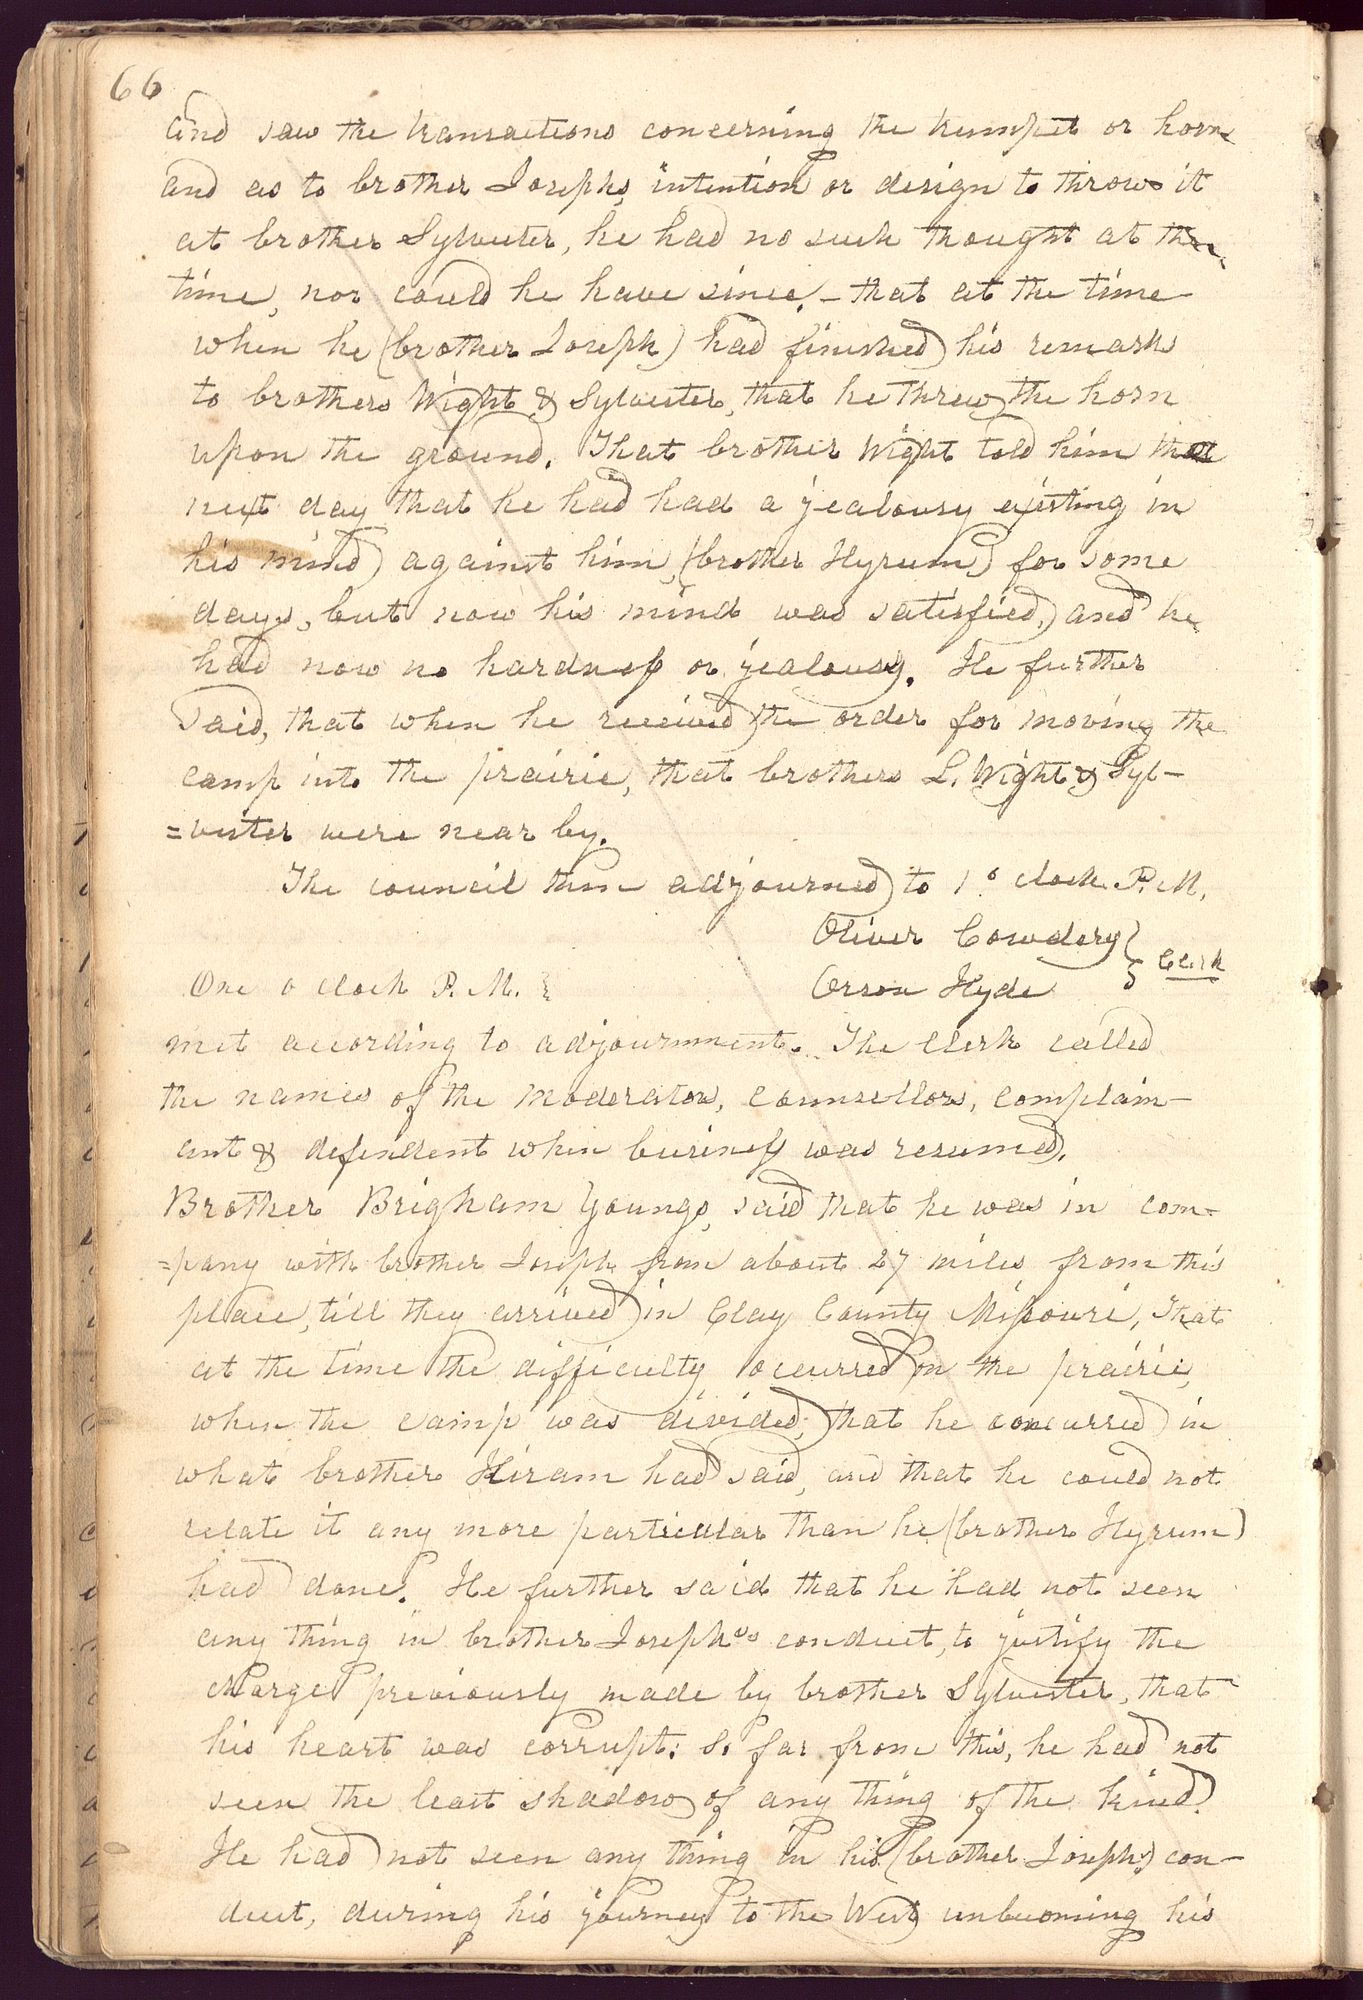 66
and saw the transactions concerning the trumpet or horn
and as to brother Josephs, intention or design to throw it
at brother Sylvester, he had no such thought at the
time, nor could he have since,– that at the time
when he (brother Joseph) had finished his remarks
to brothers Wight & Sylvester, that he threw the horn
upon the ground. That brother Wight told him the
next day that he had had a jealousy existing in
his mind against him, (brother Hyrum) for some
days, but now his mind was satisfied, and he
had now no hardness or jealousy. He further
said, that when he received the order for moving the
camp into the prairie, that brothers L. Wight & Syl-
=vester were near by.
The council then adjourned to 1 o clock. P.M.
Oliver Cowdery }
Orson Hyde } Clerk
One o clock P.M. }
met according to adjournment. The Clerk called
the names of the moderator, counsellors, complain-
ant & defendent when business was resumed.
Brother Brigham Youngs, said that he was in com-
=pany with brother Joseph from about 27 miles from this
place, till they arrived in Clay County Missouri, That
at the time the difficulty occurred on the prairie,
when the camp was divided, that he concurred in
what brother Hiram had said, and that he could not
relate it any more particular than he (brother Hyrum)
had done. He further said that he had not seen
any thing in brother Joseph's conduct, to justify the
charge previously made by brother Sylvester, that
his heart was corrupt: So far from this, he had not
seen the least shadow of any thing of the kind.
He had not seen any thing in his (brother Joseph's) con-
duct, during his journey to the West unbecoming his